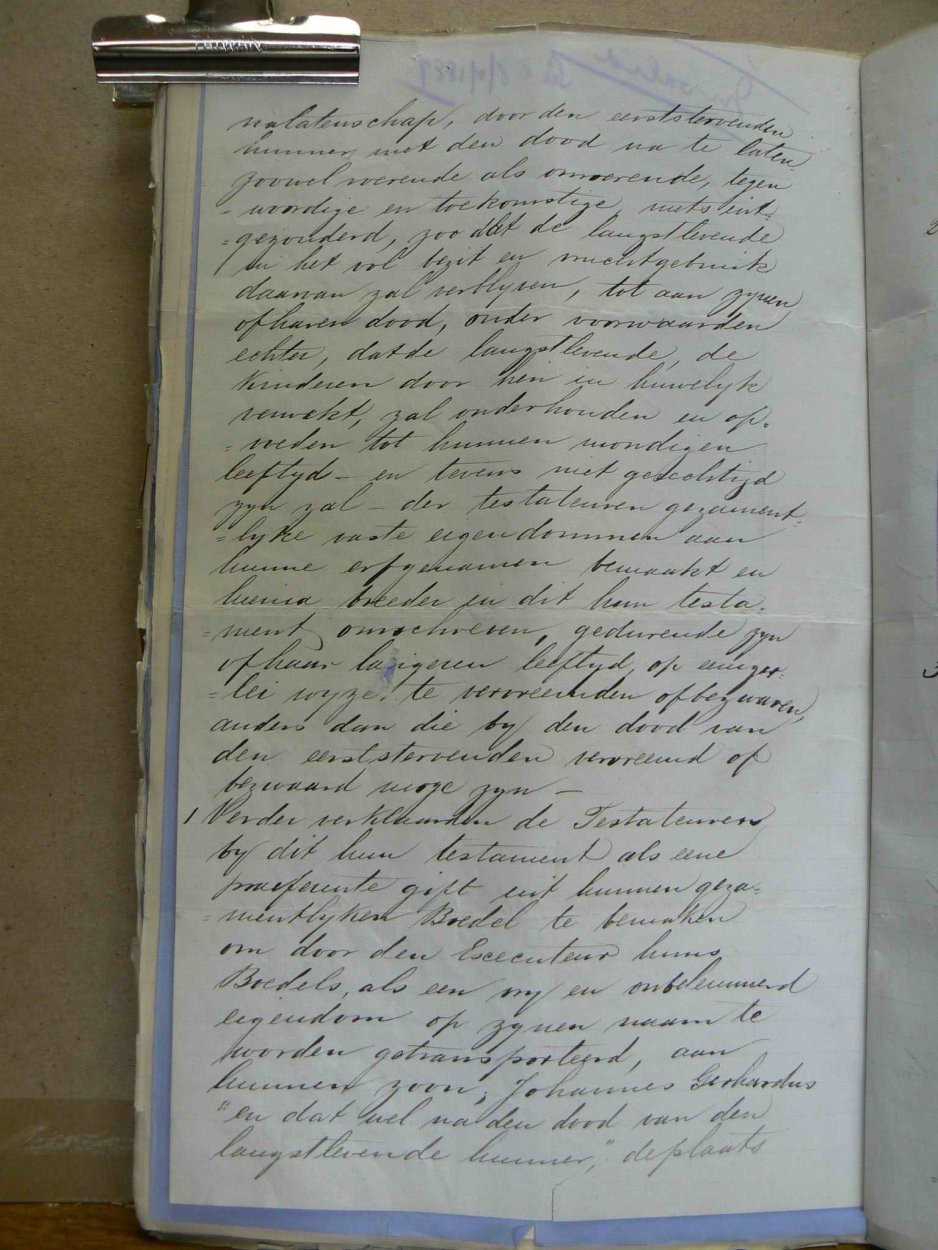 nalatenschap, door den eerststervenden
hunner, met den dood na te laten,
zoowel roerende als onroerende, tegen
- woordige en toekomstige, niets uit-
=gezonderd, zoo dat de langstlevende
in het vol bezit en vruchtgebruik
daarvan zal verblyven, tot aan zynen
of haren dood, onder voorwaarden
echter, dat de langstlevende, de
kinderen door hen in huwelyk
verwekt, zal onderhouden en op-
=voeden tot hunnen mondigen
leeftyd – en tevens niet gerechtigd
zyn zal – der testateuren gezament-
=lyke vaste eigendommen aan
hunne erfgenamen bemaakt en
hierna breeder in dit hun testa-
=ment omschreven, gedurende zyn
of haar langeren leeftyd, op eeniger-
=lei wyze te vervreemden of bezwaren,
anders dan die by den dood van
den eerststervenden vervreemd of
bezwaard moge zyn –
1 Verder verklaarden de Testateuren
by dit hun testament als eene
praeferente gift uit hunnen geza-
=mentlyken Boedel te bemaken
om door den Executeur huns
Boedels, als een vry en onbelemmerd
eigendom op zynen naam te
worden getransporteerd, aan
hunnen zoon, Johannes Gerhardus
"en dat wel na den dood van den
langstlevende hunner," de plaats